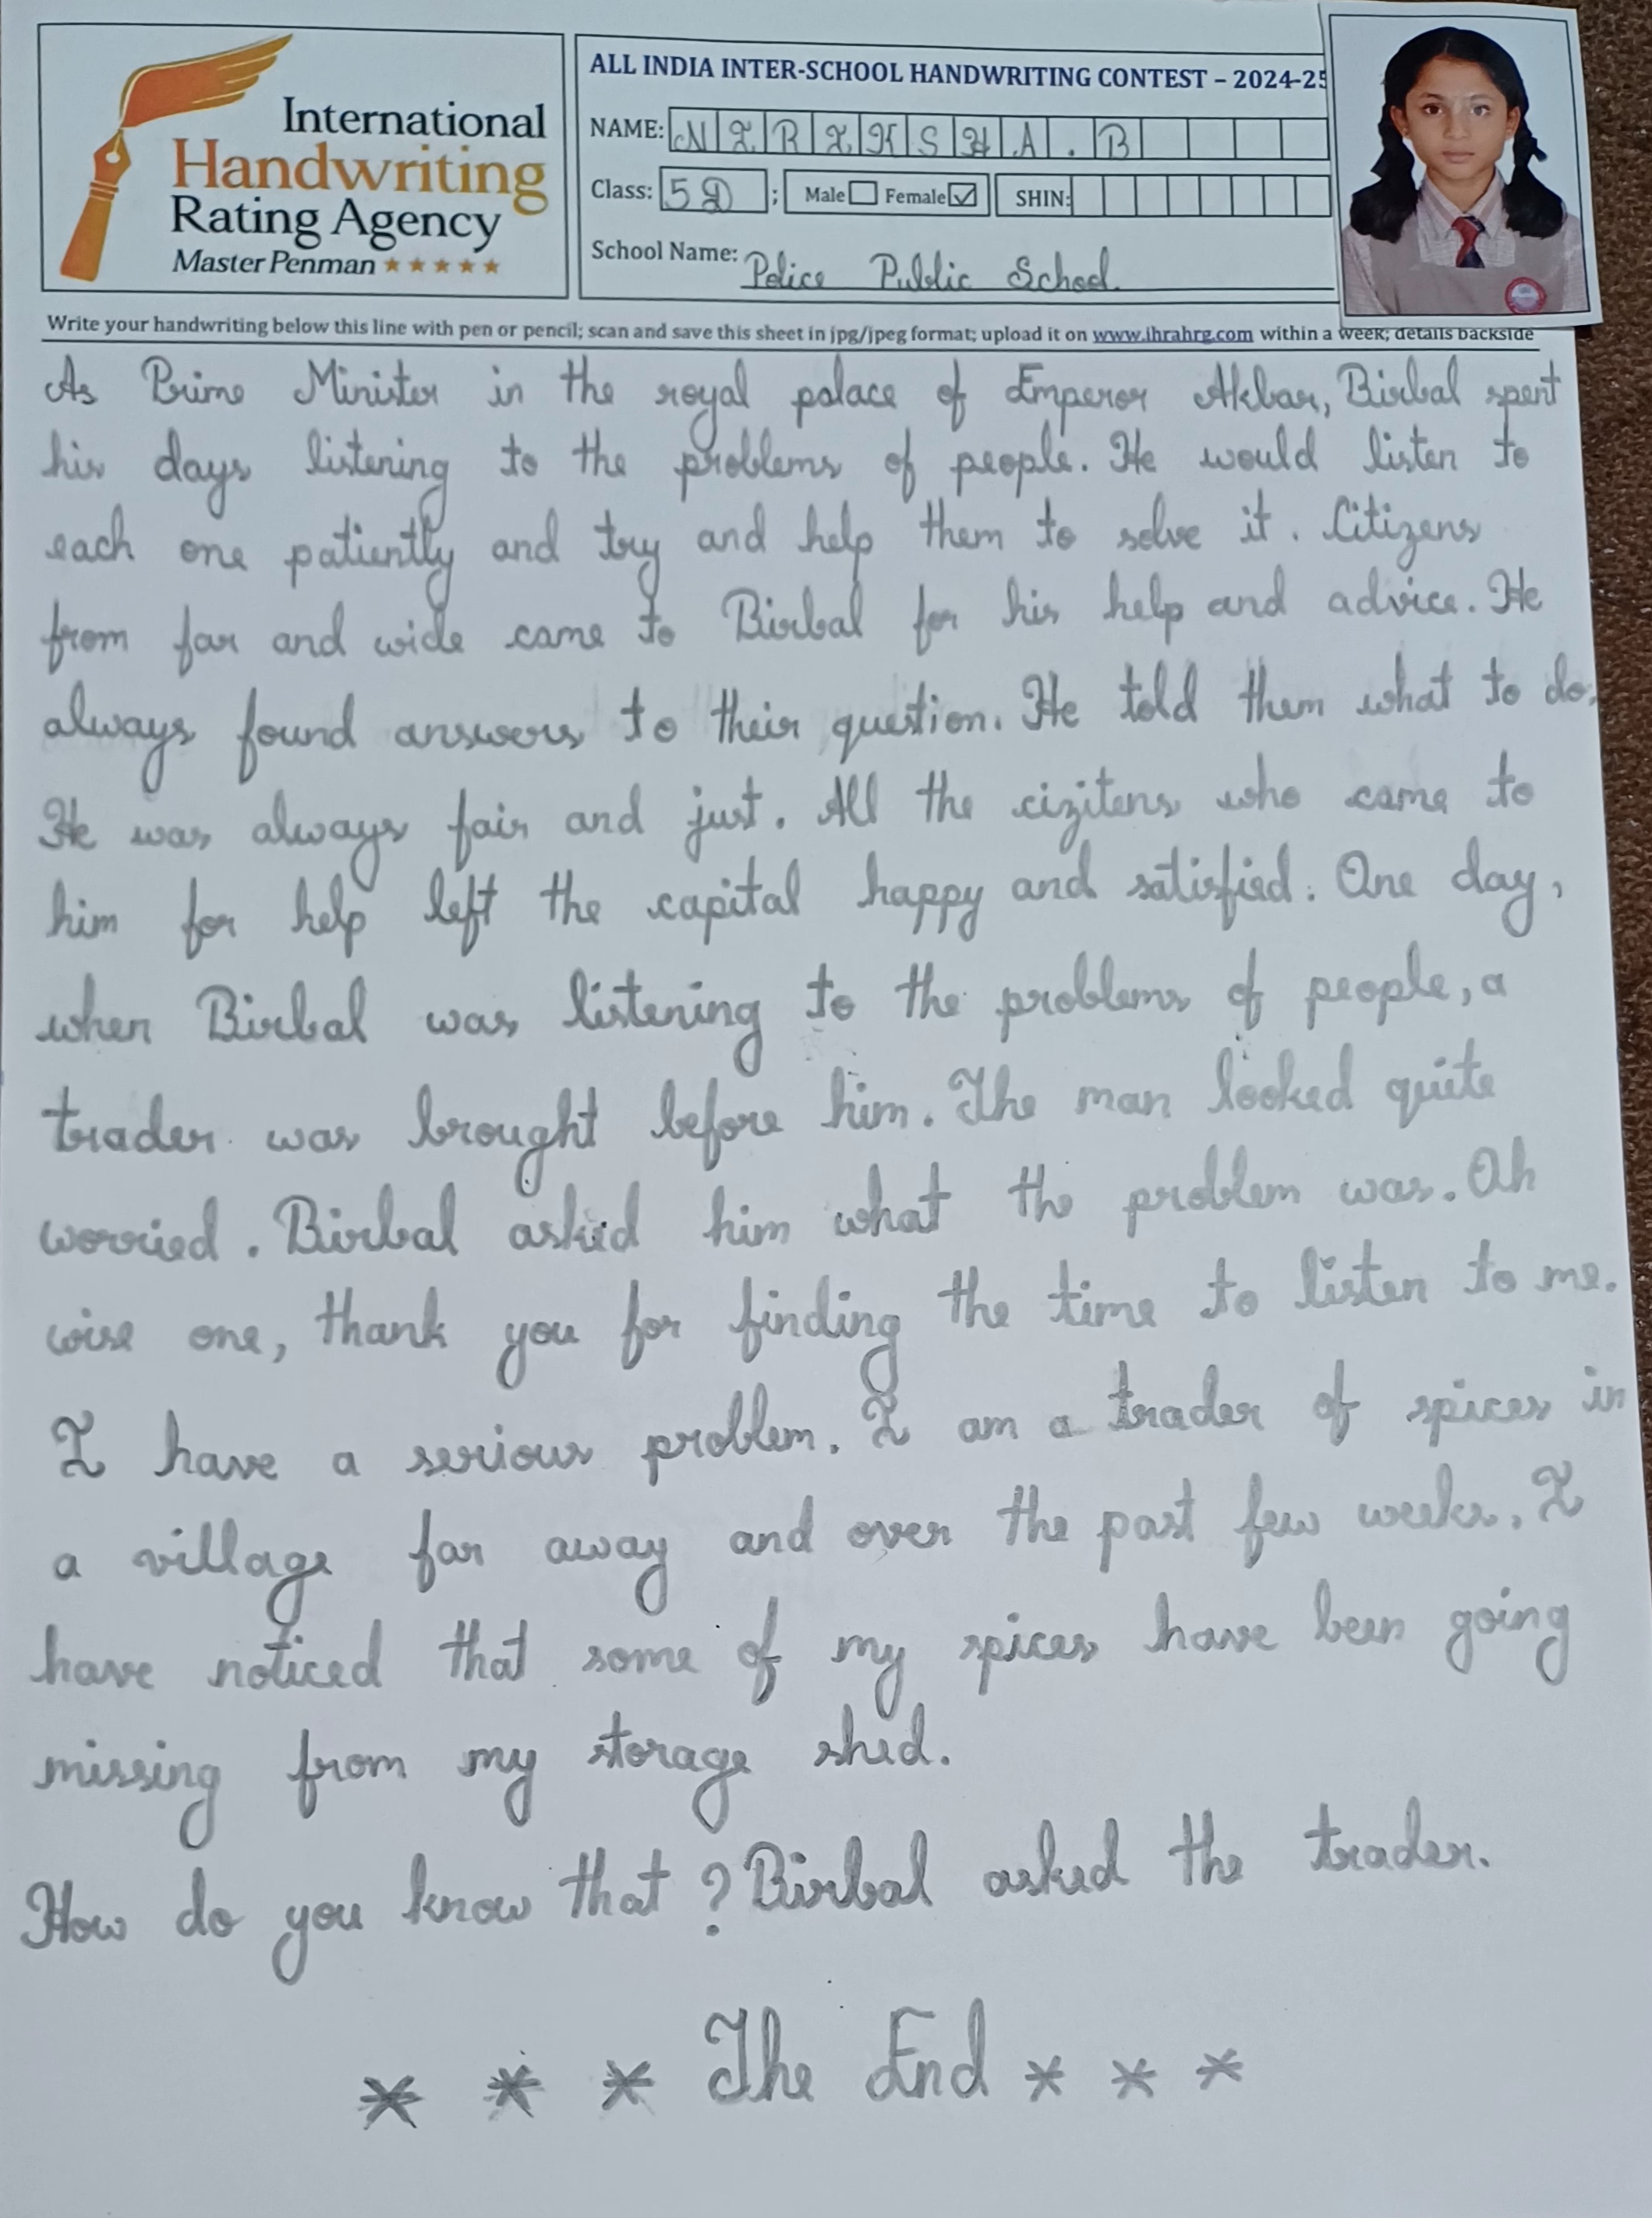 International
Handwriting
Rating Agency
Master Penman ★★★★★
ALL INDIA INTER-SCHOOL HANDWRITING CONTEST – 2024-25
NAME: NIRIKSHA.B
Class: 5D ; Male Female ✓ SHIN:
School Name: Police Public School
Write your handwriting below this line with pen or pencil; scan and save this sheet in jpg/jpeg format; upload it on www.ihrahrg.com within a week; details backside
As Prime Minister in the royal palace of Emperor Akbar, Birbal spent
his days listening to the problems of people. He would listen to
each one patiently and try and help them to solve it. Citizens
from far and wide came to Birbal for his help and advice. He
always found answers to their question. He told them what to do.
He was always fair and just. All the cizitens who came to
him for help left the capital happy and satisfied. One day,
when Birbal was listening to the problems of people, a
trader was brought before him. The man looked quite
worried. Birbal asked him what the problem was. Oh
wise one, thank you for finding the time to listen to me.
I have a serious problem. I am a trader of spices in
a village far away and over the past few weeks, I
have noticed that some of my spices have been going
missing from my storage shed.
How do you know that ? Birbal asked the trader.
* * * The End * * *